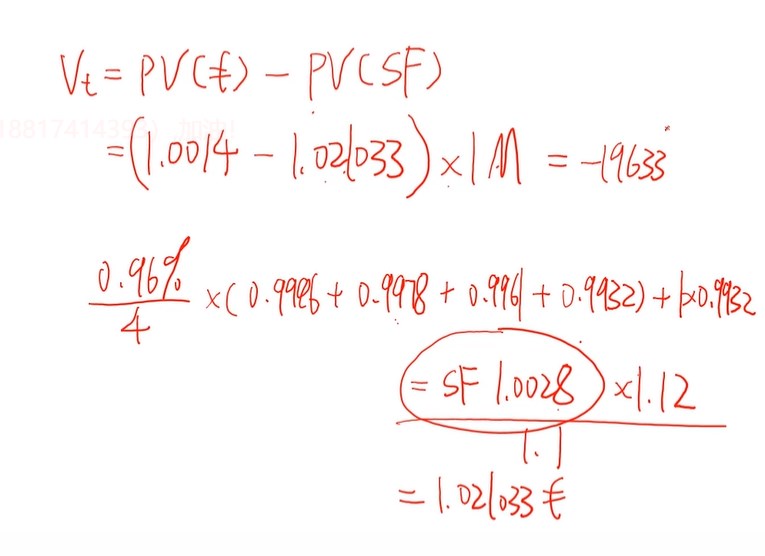 Vt = PV(€) − PV(SF)
= (1.0014 − 1.021033) × 1M = −19633
0.96%/4 × (0.9996 + 0.9978 + 0.9961 + 0.9932) + 1×0.9932
= SF 1.0028 × 1.12
1.1
= 1.021033 €